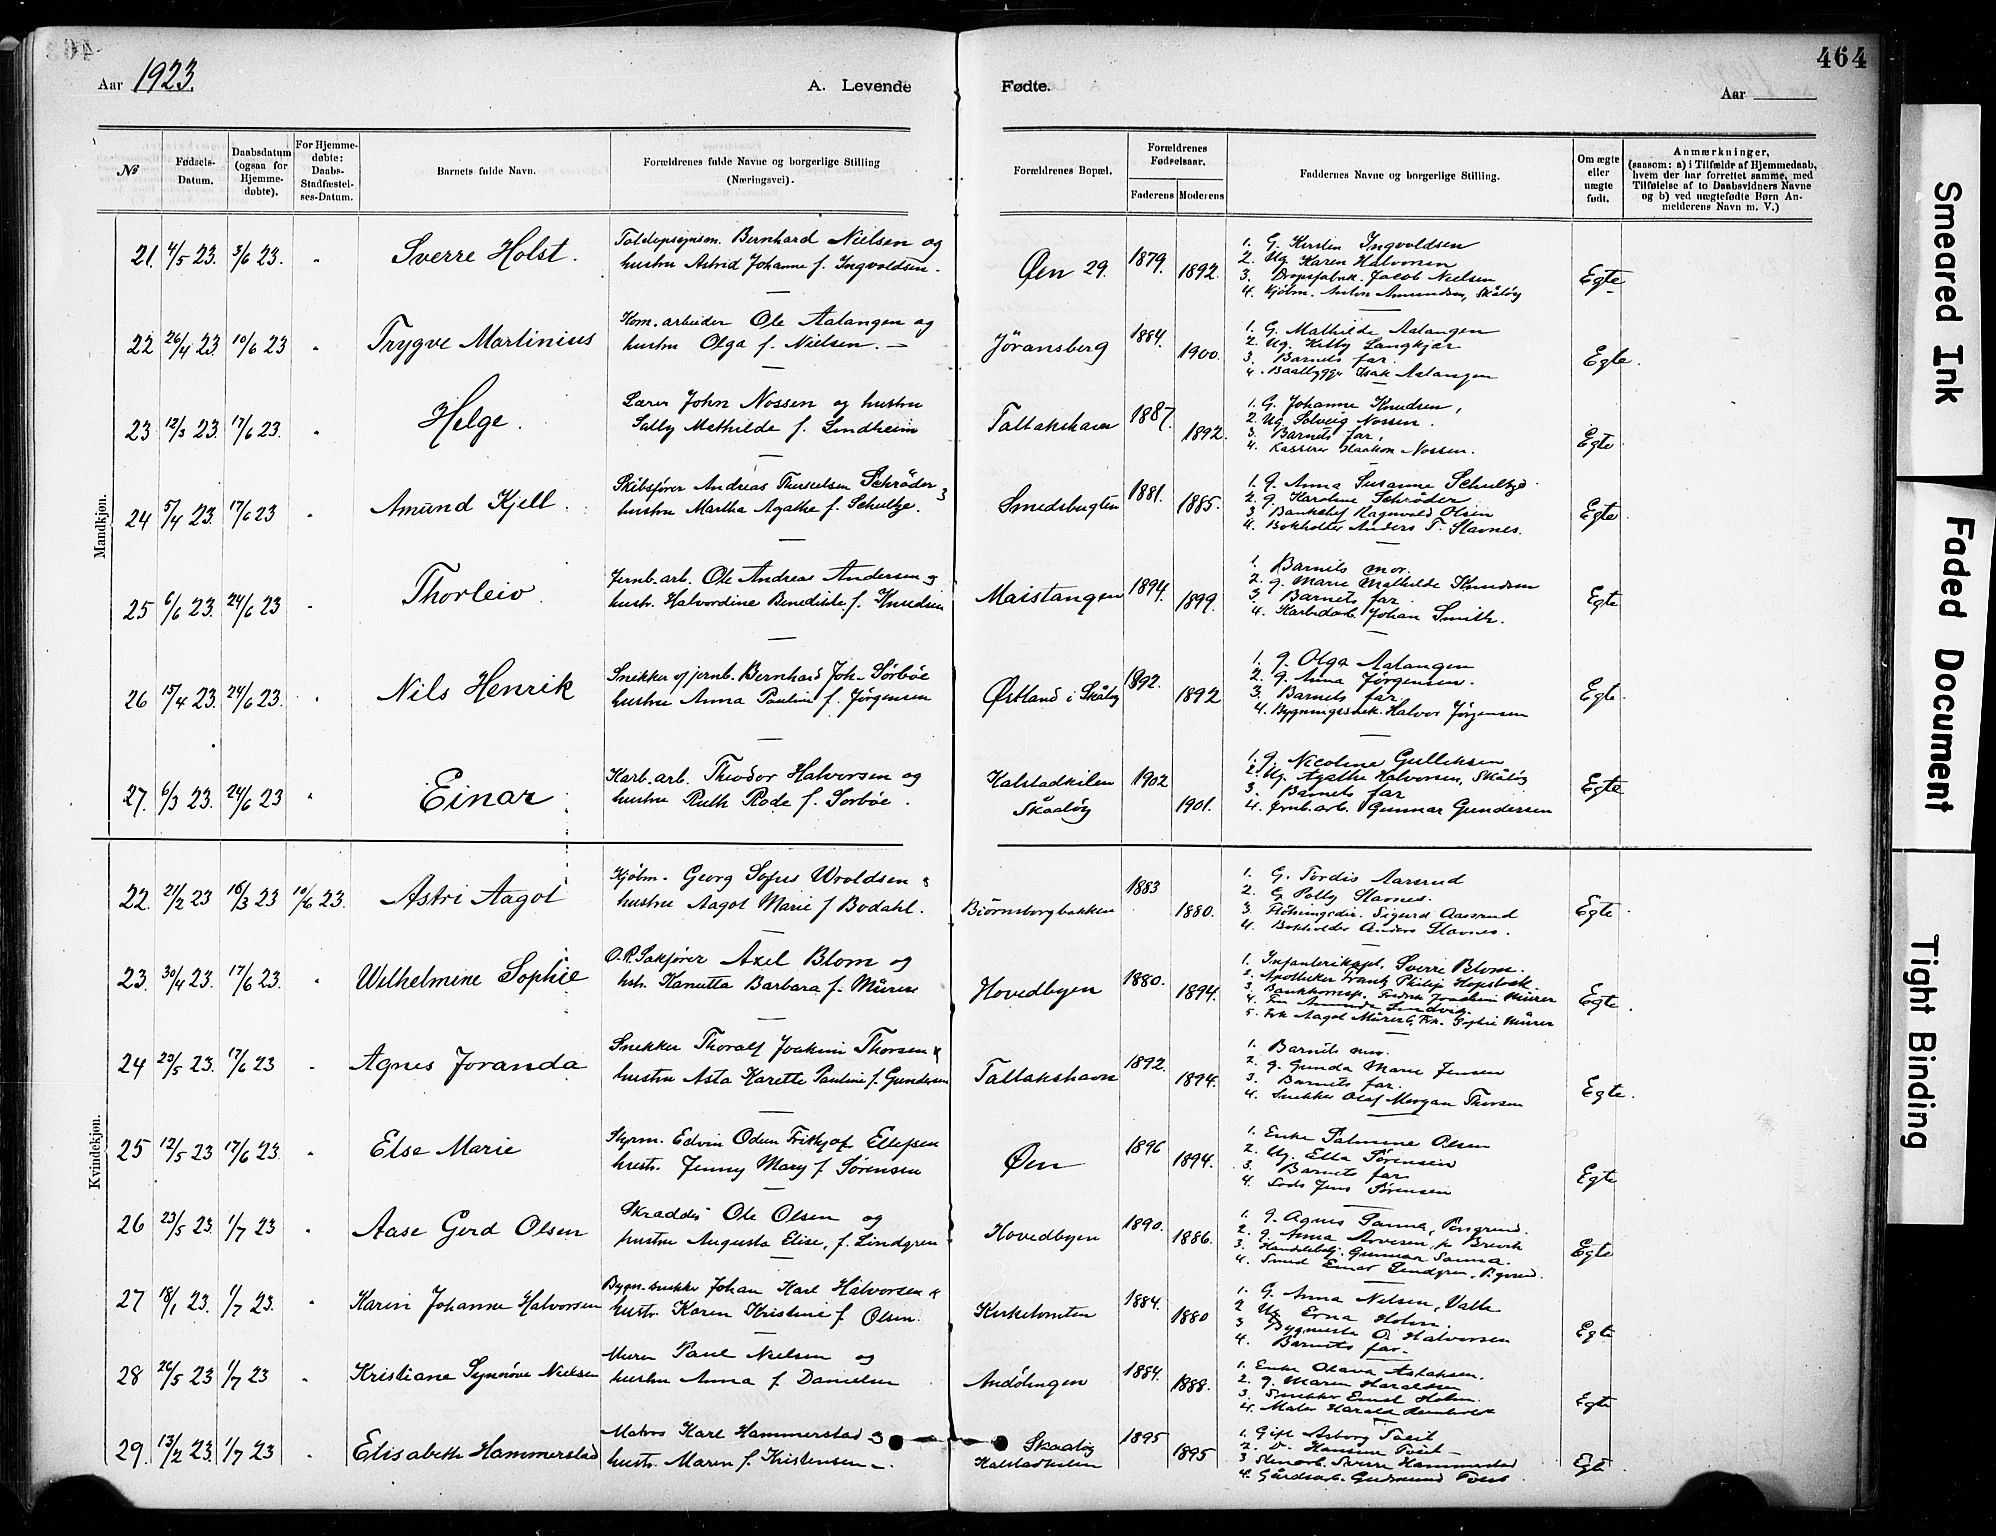 464
Aar 1923.
A. Levende
Fødte.
Aar
№
Fødsels-Datum.
Daabsdatum (ogsaa for Hjemme-døbte).
For Hjemme-døbte: Daabs-Stadfæstel-ses-Datum.
Barnets fulde Navn.
Forældrenes fulde Navne og borgerlige Stilling (Næringsvei).
Forældrenes Bopæl.
Forældrenes Fødselsaar.
Faderens
Moderens
Faddernes Navne og borgerlige Stilling.
Om ægte eller uægte født.
Anmærkninger,
(saasom: a) i Tilfælde af Hjemmedaab,
hvem der har forrettet samme, med
Tilføielse af to Daabsvidners Navne
og b) ved uægtefødte Børn An-
melderens Navn m. V.)
Mandkjøn.
21. 4/5 23. 3/6 23. Sverre Holst.
Toldopsynsm. Bernhard Nielsen og
hustru Astrid Johanne f. Ingvoldsen.
Øen 29. 1879. 1892.
1. G. Kirsten Ingvoldsen
2. Ug. Karen Halvorsen
3. Dropsfabrik. Jacob Nielsen
4. Kjøbm. Anton Amundsen, Skåtøy
Egte
22 26/4 23. 10/6 23 Trygve Martinius
Kom. arbeider Ole Aalangen og
hustru Olga f. Nielsen.
Jøransberg 1884. 1900.
1. G. Mathilde Aalangen
2. Ug. Kitty Langkjær
3. Barnets far.
4. Baatbygger Isak Aalangen
Egte.
23 12/3 23. 17/6 23. Helge.
Lærer John Nossen og hustru
Sally Mathilde f. Lindheim
Tallakshavn 1887. 1892.
1. G. Johanne Knudsen,
2. Ug. Solveig Nossen.
3. Barnets far,
4. Kasserer Haakon Nossen.
Egte
24 5/4 23. 17/6 23 Amund Kjell.
Skibsfører Andreas Schrøder
hustru Martha Agathe f. Schultze.
Smedsbugten 1881. 1885.
1. g. Anna Susanne Schultze
2. g. Karoline Schrøder
3 Bankchef Ragnvald Olsen
4. Bokholder Anders T. Stavnes.
Egte
25 6/6 23. 24/6 23 Thorleiv.
Jernb. arb. Ole Andreas Andersen og
hustr. Halvordine Benedikte f. Knudsen
Maistangen 1894. 1899.
1. Barnets mor.
2. g. Marie Mathilde Knudsen
3. Barnets far
4. Karbidarb. Johan Smith.
Egte
26 15/4 23. 24/6 23. Nils Henrik
Snekker v/ jernb. Bernhard Joh. Sørbøe
hustru Anna Pauline f. Jørgensen
Østland i Skåtøy 1892. 1892
1. g. Olga Aalangen
2. g. Anna Jørgensen.
3. Barnets far.
4. Bygningssnek. Halvor Jørgensen
Egte.
27. 6/3 23. 24/6 23 Einar
Karb. arb. Theodor Halvorsen og
hustru Ruth Rode f. Sorbøe.
Kalstadkilen Skåatøy 1902 1901.
1. g. Nicoline Gulliksen
2. Ug. Agathe Halvorsen, Skåtøy
3. Barnets far
4. Jernb. arb. Gunnar Gundersen
Egte
Kvindekjøn.
22. 21/2 23 18/3 23 10/6 23. Astri Aagot
Kjøbm. Georg Sofus Wroldsen
hustru Aagot Marie f Bodahl.
Bjørnsborgbakken 1883 1880.
1. G. Tordis Aarsrud
2. G Polly Stavnes.
3. Fløtningsdir. Sigurd Aasrud
4. Bokholder Anders Stavnes.
Egte
23. 30/4 23. 17/6 23. Wilhelmine Sophie
O.R. Sakfører Axel Blom og
hstr. Kanutta Barbara f. Mürer
Hovedbyen 1880. 1894.
1. Infanterikapt. Sverre Blom.
2. Apotheker Frantz Philip Hopstock
3. Bankkornsp. Fredrik Joachim Mürer
4. Fru Amunda Lindvig.
5. Frk Aagot Mürer 6. Frk. Sophie Mürer
Egte.
24 23/5 23. 17/6 23 Agnes Joranda
Snekker Thoralf Joakim Thorsen &
hustru Asta Karette Pauline f. Gundersen
Tallakshavn 1892. 1894.
1. Barnets mor.
2. g. Gunda Marie Jensen
3. Barnets far.
4. Snekker Olaf Morgan Thorsen
Egte.
25 12/5 23 17/6 23 Else Marie
Styrm. Edvin Odun Fritkjof Ellefsen
hustr. Jenny Mary f. Sørensen
Øen 1896 1894.
1. Enke Palmine Olsen
2. Ug. Ella Sørensen
3. Barnets far
4. Lods Jens Sørensen
Egte
26 23/5 23. 1/7 23 Aase Gerd Olsen
Skrædder Ole Olsen og
hustru Augusta Elise, f. Lindgren
Hovedbyen 1890. 1886.
1. g. Agnes Sanna, Porsgrund.
2. g. Anna Arvesen, Brevik
3. Handelsbetj. Gunnar Sanna.
4. Smed Einar Lindgren,
Egte
27 18/1 23. 1/7 23. Karin Johanne Halvorsen
Bygn. snekker Johan Karl Halvorsen &
hustr. Karen Kristine f Olsen.
Kirketomten 1884. 1880
1. G. Anna Nilsen, Valle
2 Ug Erna Holm.
3 Bygmester O. Halvorsen
4. Barnets far.
Egte
28 26/5 23 1/7 23 Kristiane Synnøve Nielsen
Murer Paul Nielsen og
hustru Anna f Danielsen
Andølingen 1884. 1888.
1. Enke Olava Aslaksen.
2. g. Maren Haraldsen
3. Snekker Ernst Holm
4. Maler Harald
Egte
29. 13/2 23. 1/7 23. Elisabeth Hammerstad
Matros Karl Hammerstad og
hustr. Maren f. Kristensen
Skaatøy Kalstadkilen 1895 1895
1. Gift Asborg Tveit
2. D. Hansine Tveit
3 Stenarb. Sverre Hammerstad
4. Gårdsarb. Gudmund Tveit
Egte
Smeared Ink
Faded Document
Tight Binding